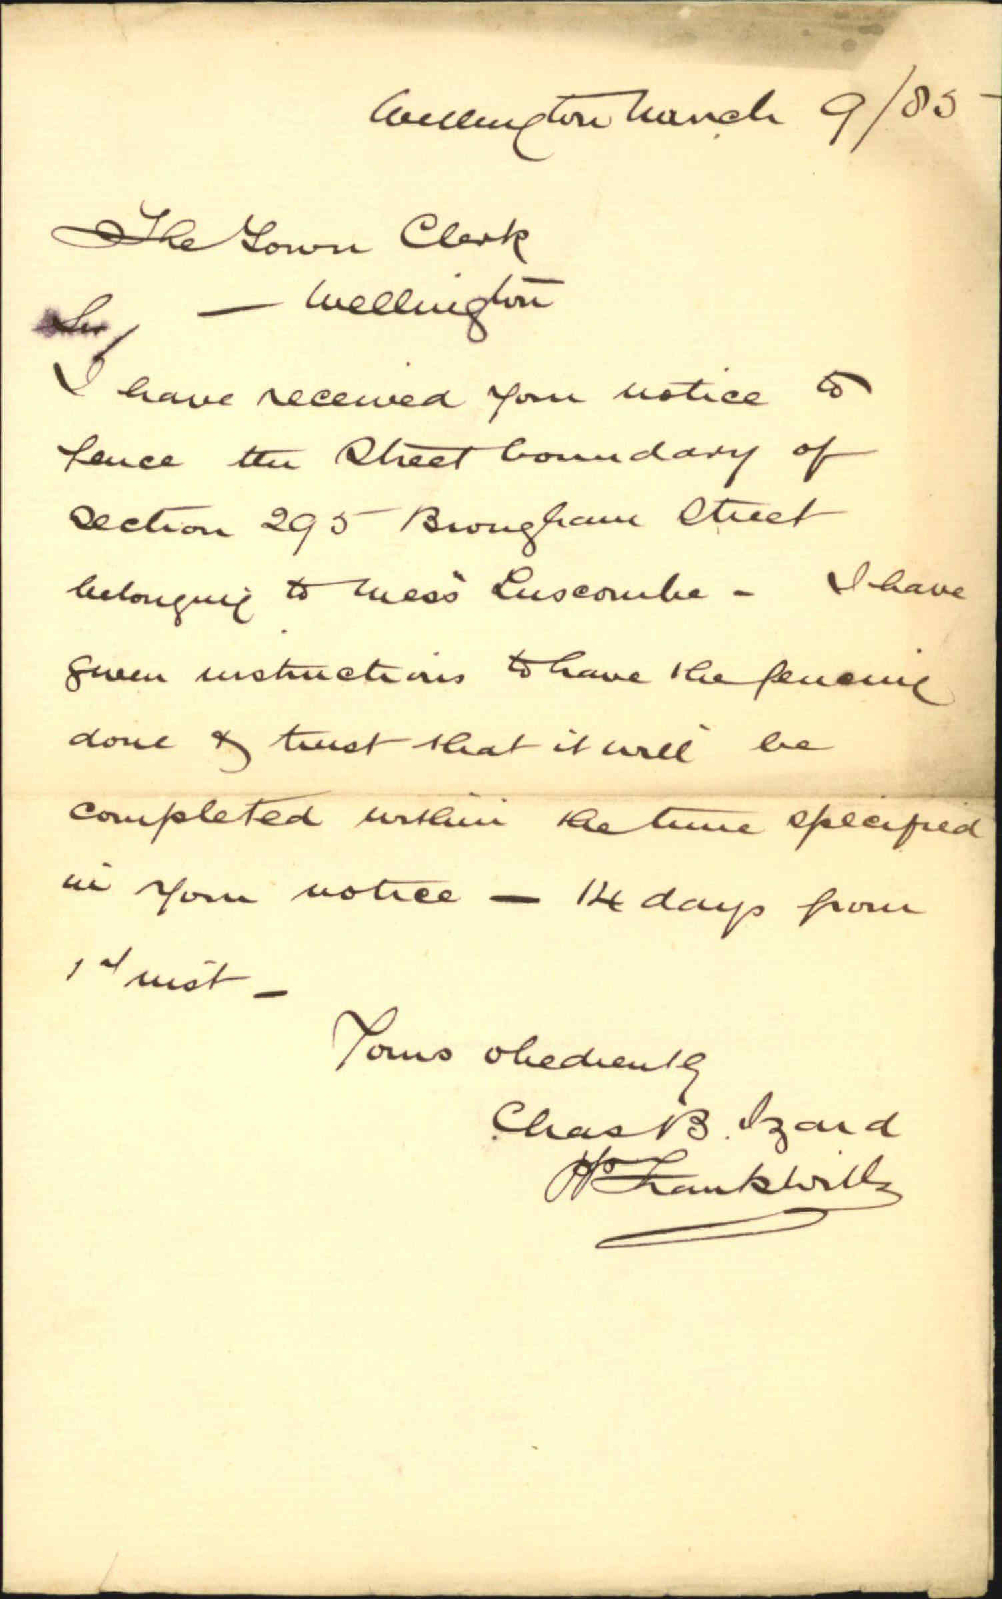 Wellington March 9/85
The Town Clerk
— Wellington
Sir,
I have received your notice to
fence the Street boundary of
section 295 Brougham Street
belonging to Mess's Luscombe - I have
given instructions to have the fencing
done & trust that it will be
completed within the time specified
in your notice — 14 days from
1st inst -
Yours obediently
Chas B. Izard